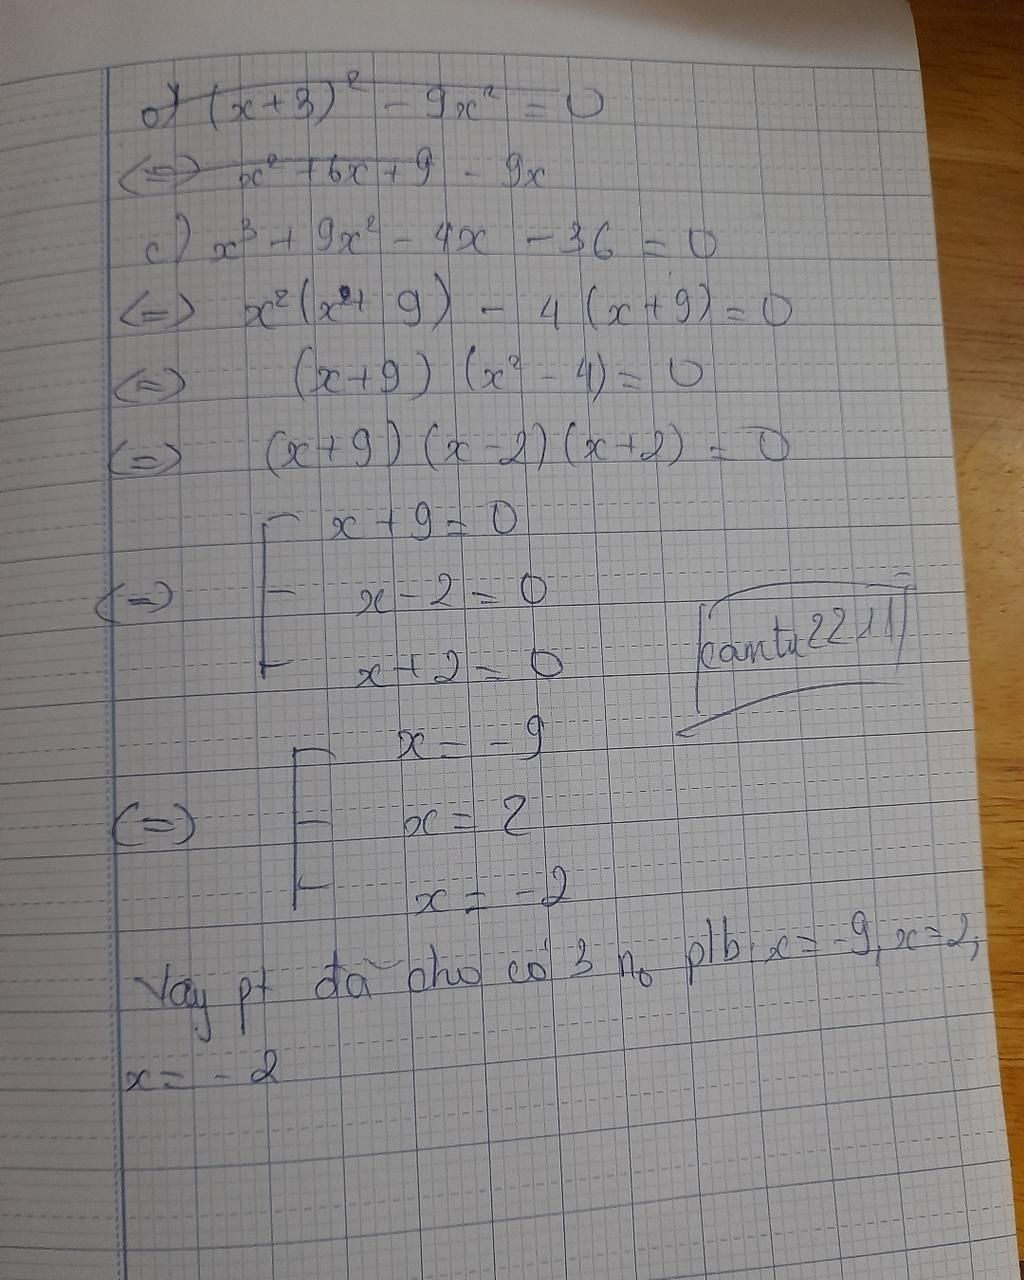 c) (x+3)² - 9x² = 0
<=> x² + 6x + 9 - 9x
c) x³ + 9x² - 4x - 36 = 0
<=> x²(x + 9) - 4(x+9) = 0
<=> (x+9)(x² - 4) = 0
<=> (x+9)(x-2)(x+2) = 0
x + 9 = 0
<=> [ x - 2 = 0
x + 2 = 0
camtu2211
x = -9
<=> [ x = 2
x = -2
Vậy pt đã cho có 3 n₀ p/b x = -9, x = 2,
x = -2